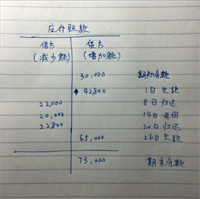 应付账款
借方 贷方
(减少额) (增加额)
30,000 期初余额
42,800 1日欠款
22,000 8日归还
20,000 14日
22,800 20日归还
65,000 26日欠款
73,000 期末余额